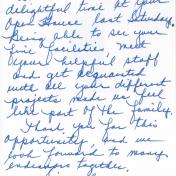 delightful time at your
Open House last Saturday.
Being able to see your
fine facilities, meet
your helpful staff
and get acquainted
with all your different
projects made us feel
like part of the family.
Thank you for this
opportunity, and we
look forward to many
endeavors together.